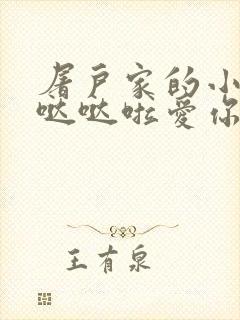 屠户家的小
哒哒啦爱你
王有泉